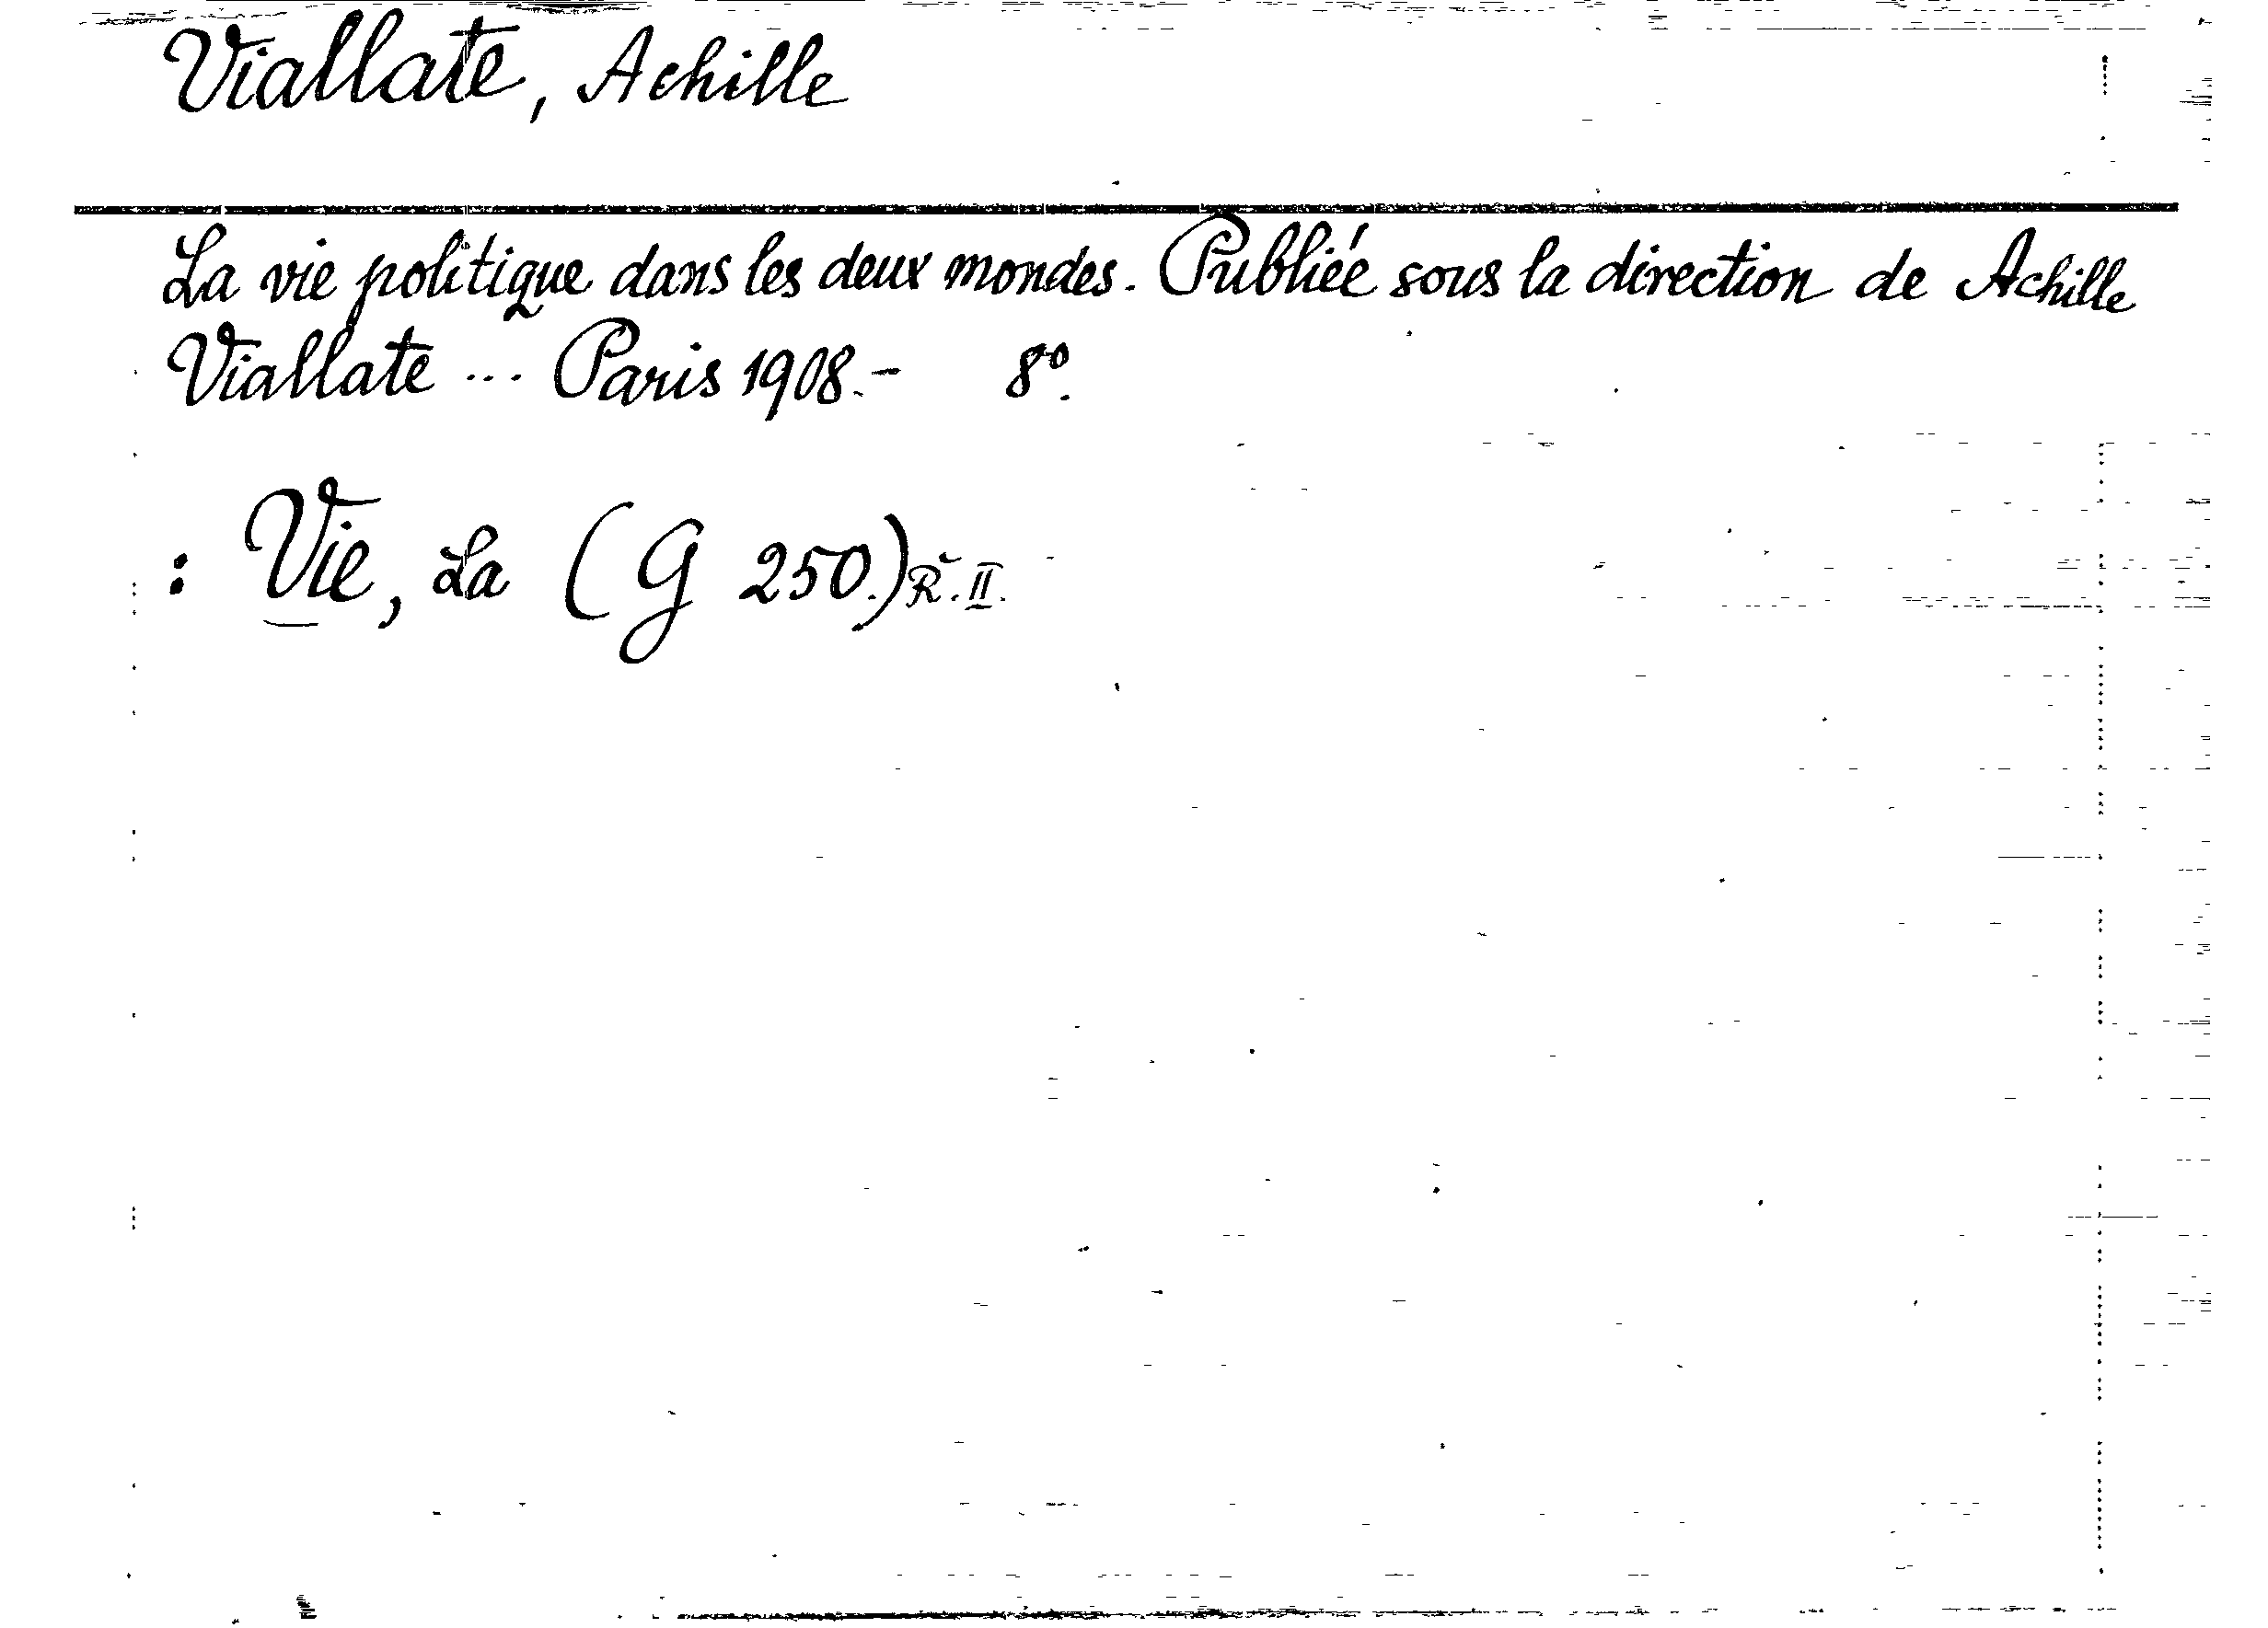 Viallate, Achille
La vie politique dans les deux mondes. Publiée sous la direction de Achille
Viallate ... Paris 1908.- 8º.
: Vie, La (G 250.) Ř. II.